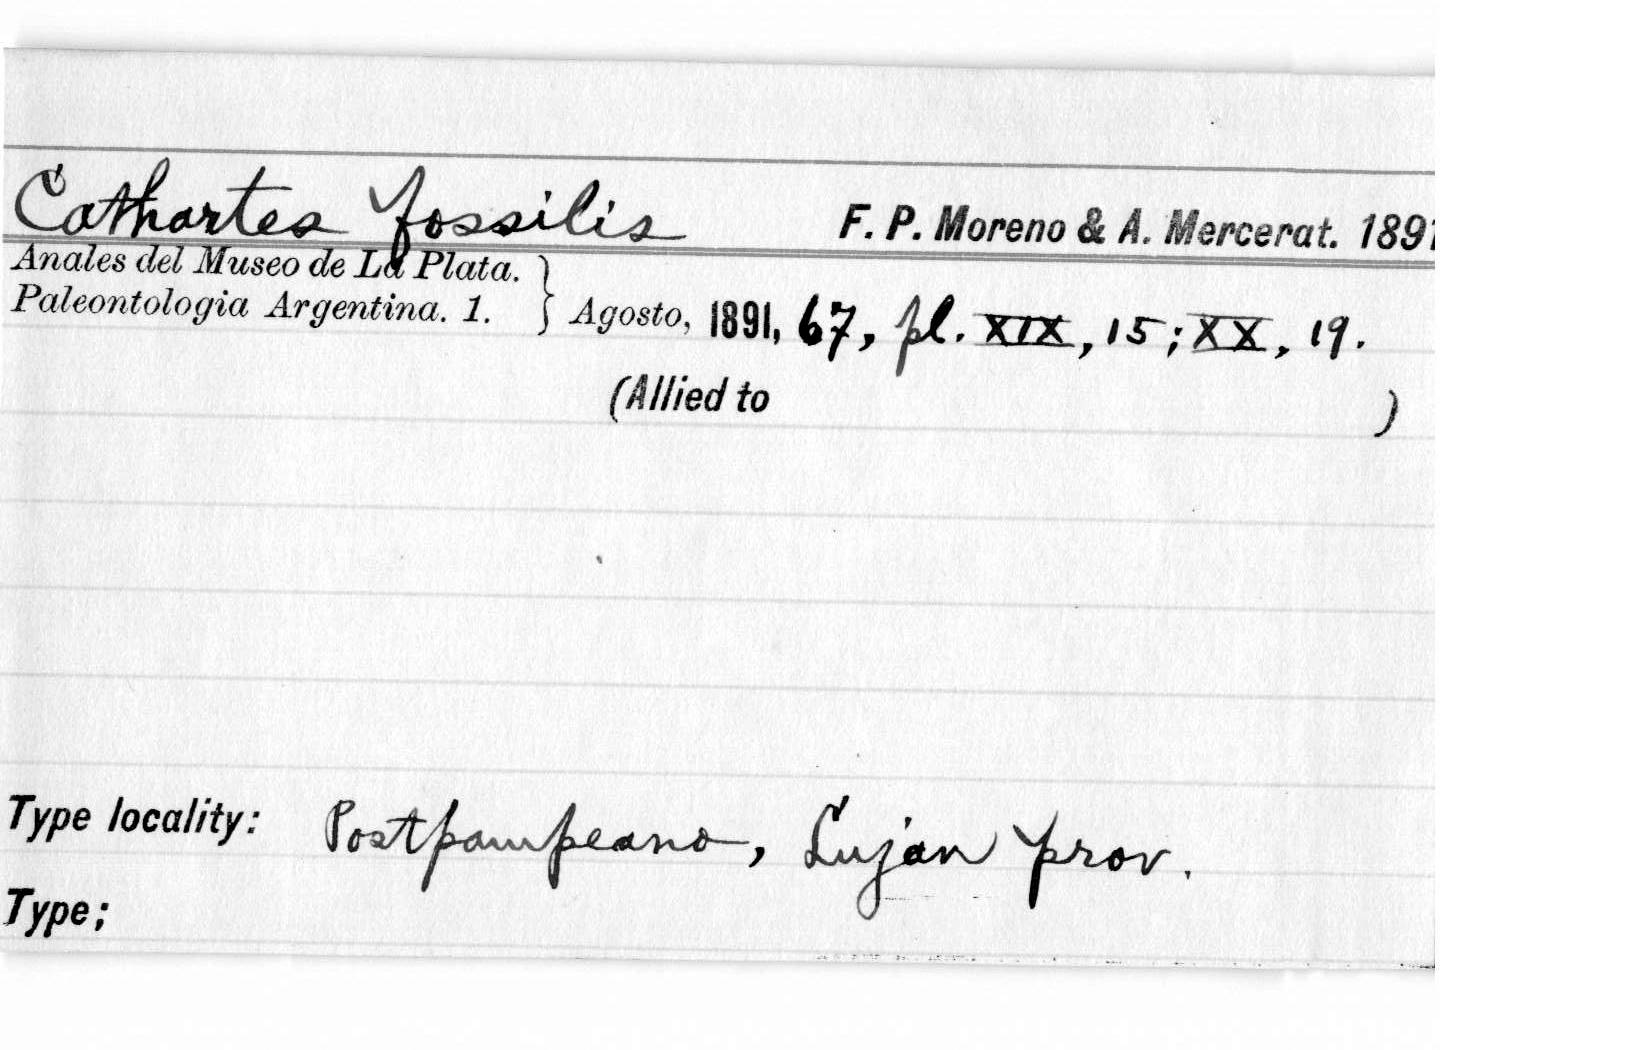 Cathartes fossilis F. P. Moreno & A. Mercerat. 1891
Anales del Museo de La Plata.
Paleontologia Argentina. 1. } Agosto, 1891, 67, pl. XIX, 15; XX, 19.
(Allied to )
Type locality: Postpampeano, Lujan prov.
Type;